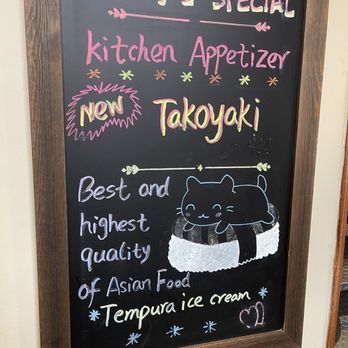 SPECIAL
kitchen Appetizer
New Takoyaki
Best and
highest
quality
of Asian Food
Tempura ice cream